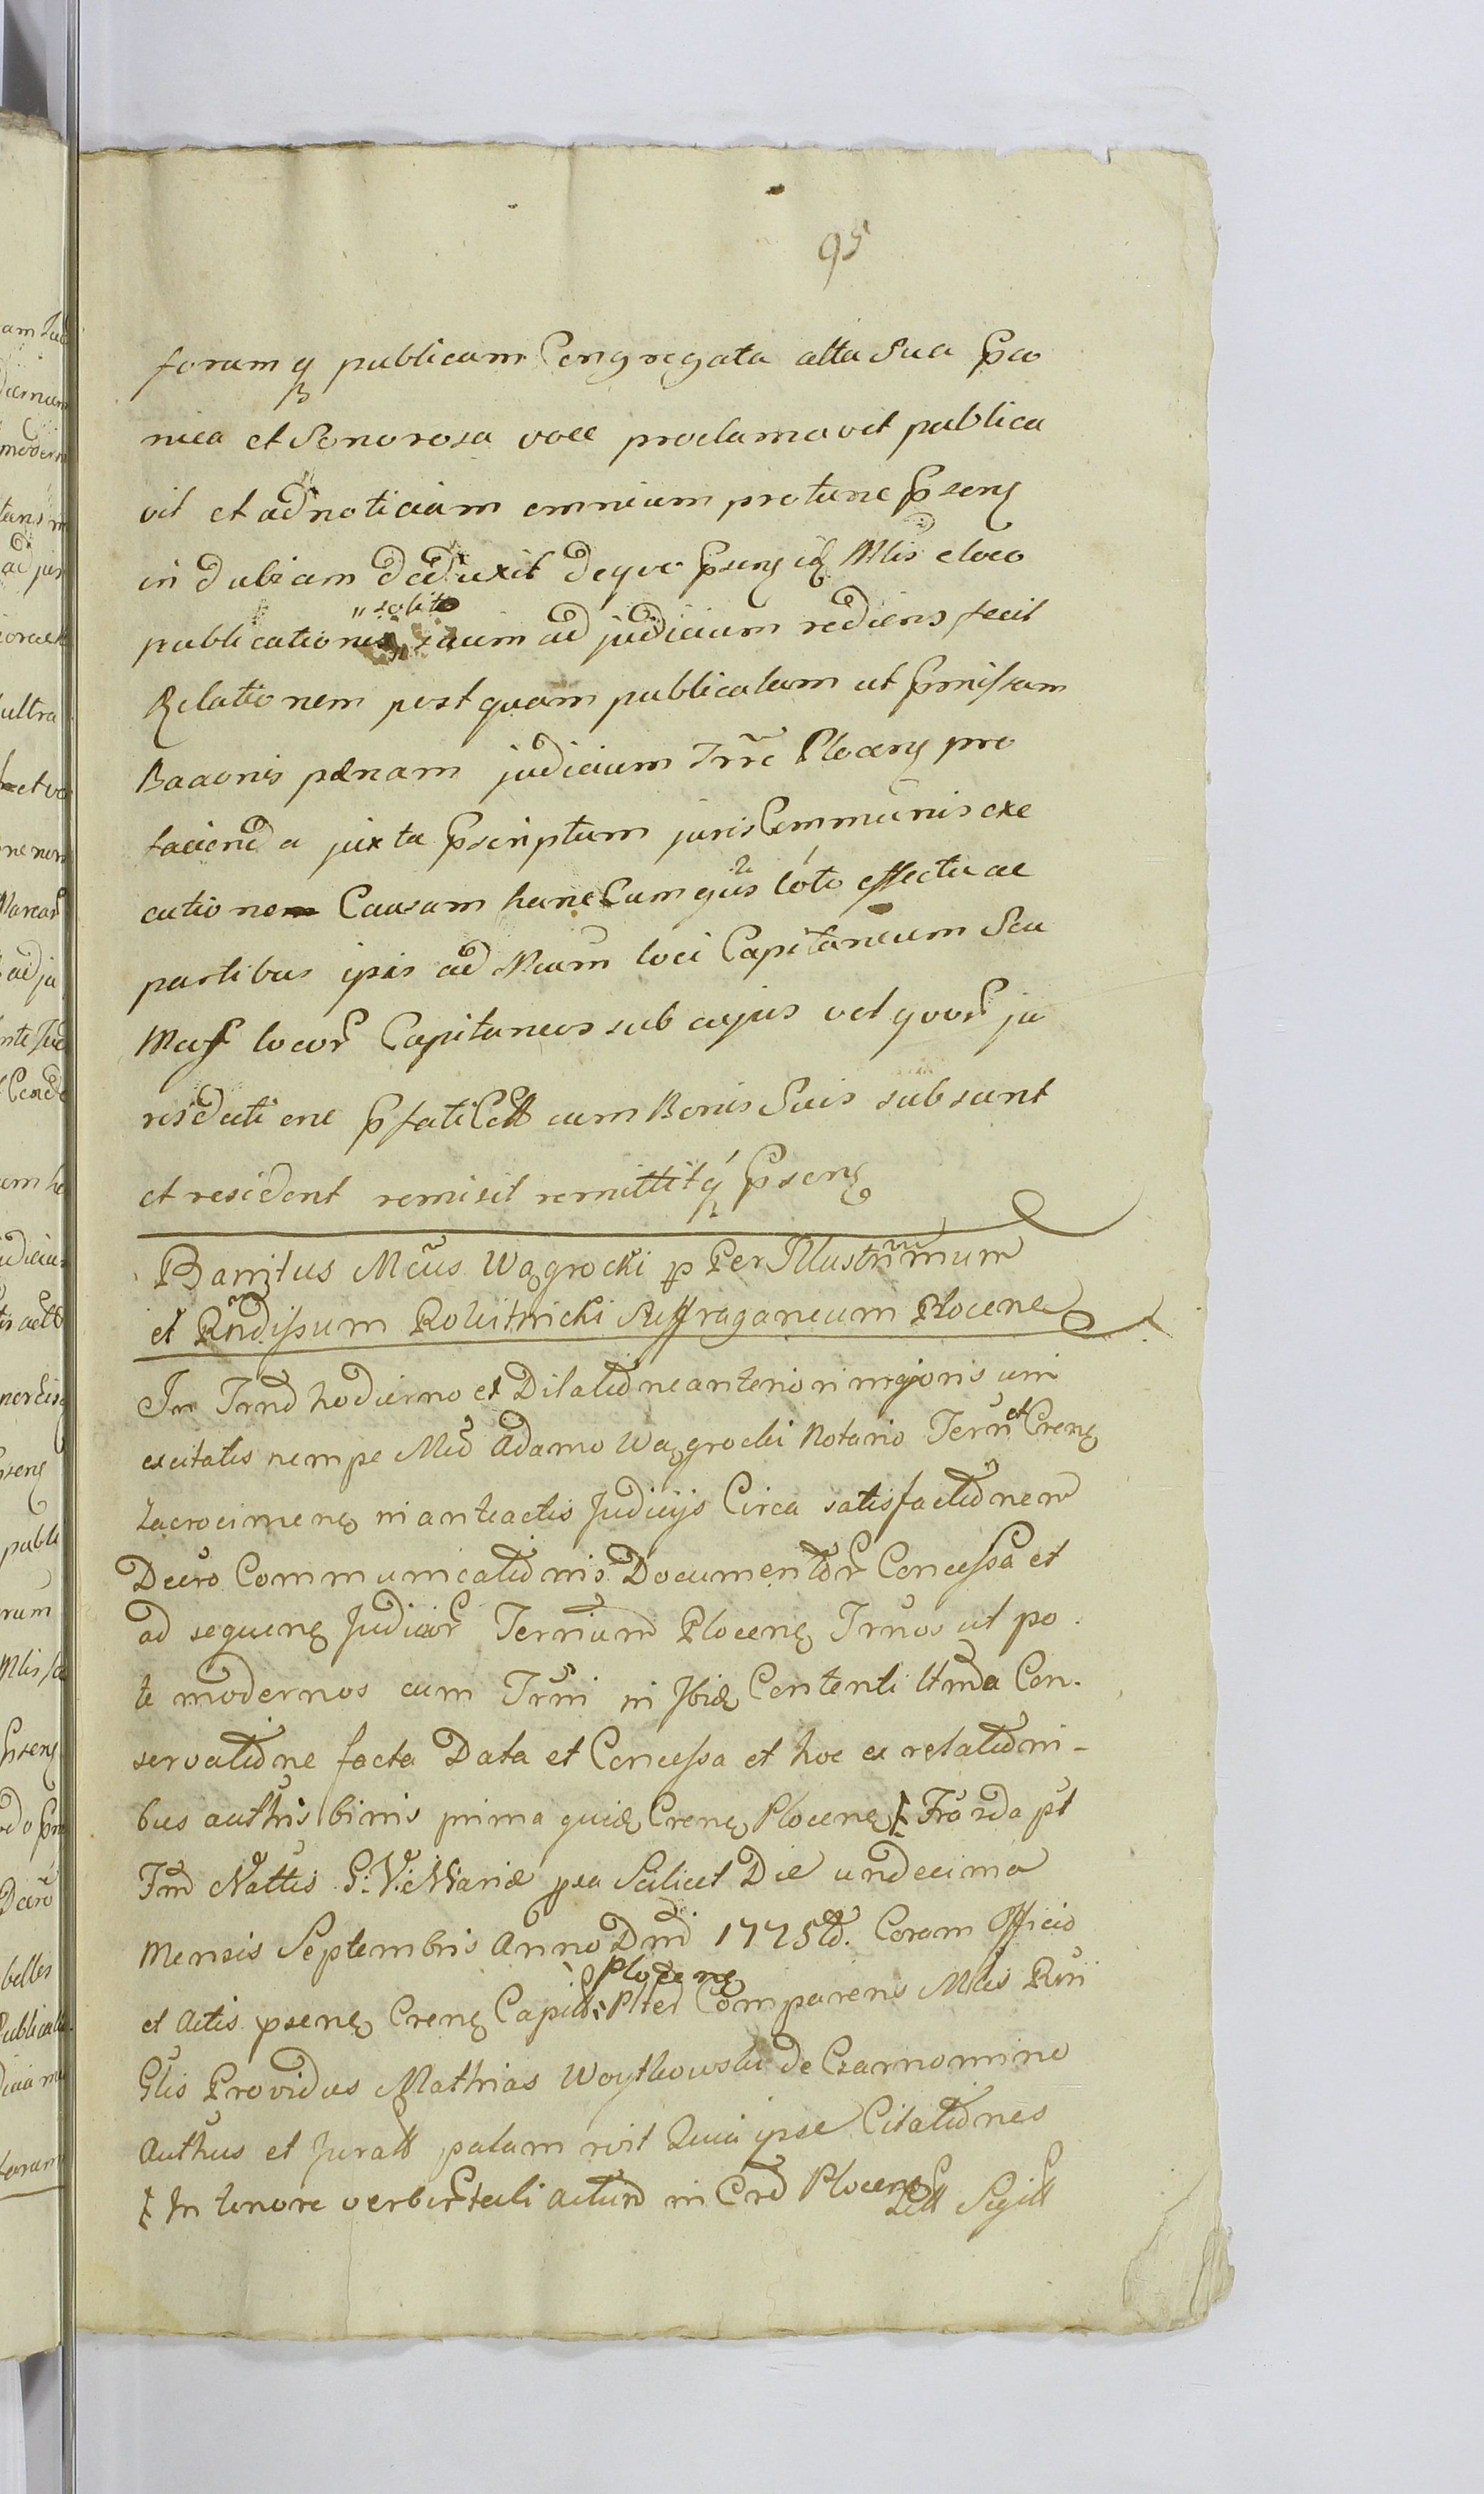 95
forumq publicum Congregata alta sua Proo
nica et Sonorosa voce proclamavit publica
vit et ad noticiam omnium protunc Psens
in dubiam deduxit deqve Psens idq Mlis eloco
"solito
publicationis suum ad judicium rediens fecit
Relationem postquam publicatam ut Pmissam
Baaonis pænam judicium Trre Plocens pro
faciend a juxta Pscriptum juris Communis exe
cutione Causam hanc Cum ejus toto effectu ac
partibus ipsis ad Mcum loci Capitaneum Seu
Mcos locor Capitaneos sub cujus vel quor ju
risdicti one Pfati Citt cum Bonis Suis subsunt
et resident remisit remittitq Psens
Banitus Mcus Wągrocki p Per Illustrimum
et Rndissum Rokitnicki Suffraganeum Plocens
In Trno hodierno ex Dilatione anteriori majoris uni
excitatis nempe Mco Adamo Wągrocki Notario Terri et Crens
Zacrocimens in anteactis Judicijs Circa satisfactionem
Decro Communicationis Documentor Concessa et
ad sequens Judicior Terrium Plocens Trnos ut po
te modernos cum Trni in Ibid Contenti Utmda Con-
servatione facta Data et Concessa et hoc ex relationi-
bus authis binis prima quid Crens Plocens Fra 2da pt
Fm Nattis B: V: Mariæ pta Scilicet Die undecima
Mensis Septembris Anno Dni 1775to. Coram Officio
Plocens
et Actis psens Crens Capitt: Pter Comparens Mlis Rni
Glis Providus Mathias Woytkowski de Czarnomino
Authus et Juratt palam rvit Quia ipse Citationes
In tenore verber tali actum in Cro Plocens Litt Sigitt